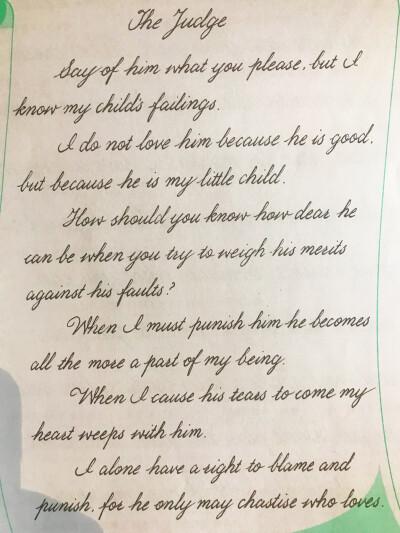 The Judge
Say of him what you please, but I
know my child's failings.
I do not love him because he is good,
but because he is my little child.
How should you know how dear he
can be when you try to weigh his merits
against his faults?
When I must punish him he becomes
all the more a part of my being.
When I cause his tears to come my
heart weeps with him.
I alone have a right to blame and
punish, for he only may chastise who loves.